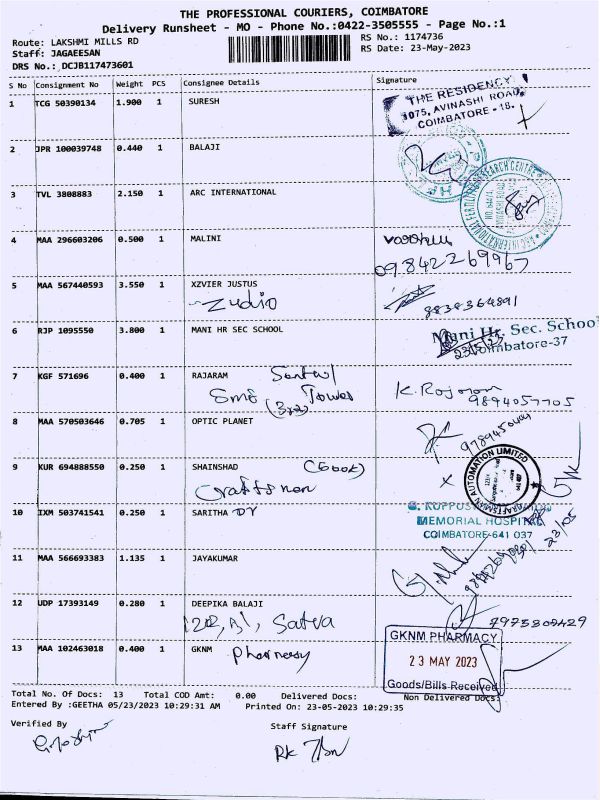 THE PROFESSIONAL COURIERS, COIMBATORE
Delivery Runsheet - MO - Phone No.:0422-3505555 - Page No.:1
Route: LAKSHMI MILLS RD
RS No.: 1174736
Staff: JAGAEESAN
RS Date: 23-May-2023
DRS No.: DCJB117473601
S No Consignment No Weight PCS Consignee Details Signature
1 TCG 50390134 1.900 1 SURESH
THE RESIDENCY
1075, AVINASHI ROAD,
COIMBATORE - 18.
2 JPR 100039748 0.440 1 BALAJI
3 TVL 3808883 2.150 1 ARC INTERNATIONAL
4 MAA 296603206 0.500 1 MALINI
09842269967
5 MAA 567440593 3.550 1 XZVIER JUSTUS
Zudio
6 RJP 1095550 3.800 1 MANI HR SEC SCHOOL
Mani Hr. Sec. School
Coimbatore-37
7 KGF 571696 0.400 1 RAJARAM
Tower
9894057705
8 MAA 570503646 0.705 1 OPTIC PLANET
9 KUR 694888550 0.250 1 SHAINSHAD
Craftsman
CRAFTSMAN AUTOMATION LIMITED
10 IXM 503741541 0.250 1 SARITHA DY
MEMORIAL HOSPITAL
COIMBATORE-641 037
23/05
11 MAA 566693383 1.135 1 JAYAKUMAR
12 UDP 17393149 0.280 1 DEEPIKA BALAJI
Satva
13 MAA 102463018 0.400 1 GKNM
Pharmacy
GKNM PHARMACY
23 MAY 2023
Goods/Bills Received
Total No. Of Docs: 13 Total COD Amt: 0.00 Delivered Docs: Non Delivered Docs:
Entered By :GEETHA 05/23/2023 10:29:31 AM Printed On: 23-05-2023 10:29:35
Verified By
Staff Signature